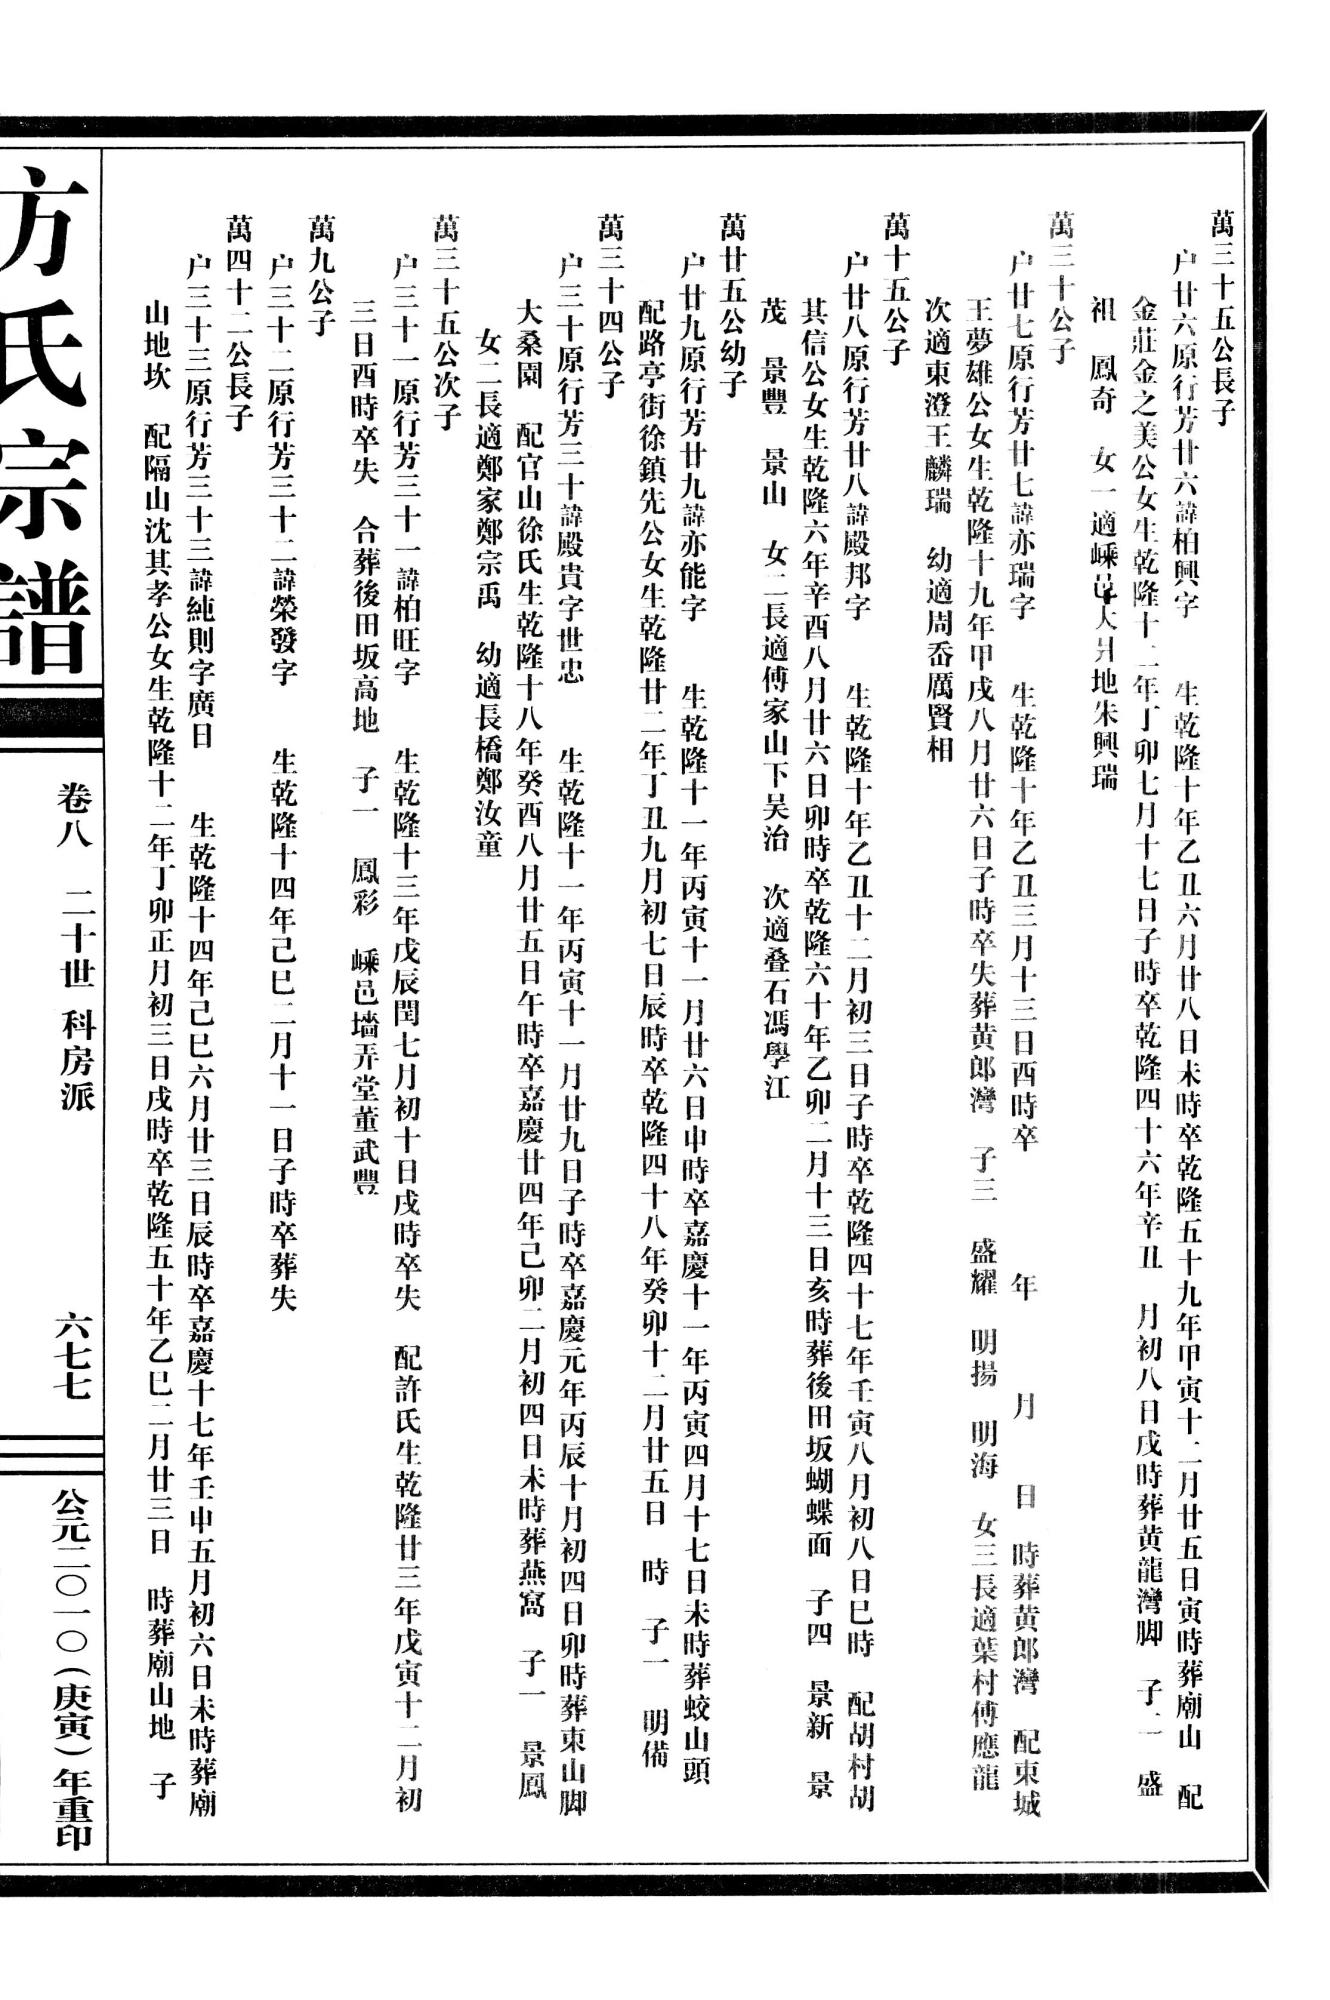 萬三十五公長子
户廿六原行芳廿六諱柏興字　生乾隆十年乙丑六月廿八日未時卒乾隆五十九年甲寅十二月廿五日寅時葬廟山　配
金莊金之美公女生乾隆十二年丁卯七月十七日子時卒乾隆四十六年辛丑　月初八日戌時葬黄龍灣脚　子二　盛
祖　鳳奇　女一適嵊邑大爿地朱興瑞
萬三十公子
户廿七原行芳廿七諱亦瑞字　生乾隆十年乙丑三月十三日酉時卒　年　月　日　時葬黄郎灣　配東城
王夢雄公女生乾隆十九年甲戌八月廿六日子時卒失葬黄郎灣　子三　盛耀　明揚　明海　女三長適葉村傅應龍
次適東澄王麟瑞　幼適周岙厲賢相
萬十五公子
户廿八原行芳廿八諱殿邦字　生乾隆十年乙丑十二月初三日子時卒乾隆四十七年壬寅八月初八日巳時　配胡村胡
其信公女生乾隆六年辛酉八月廿六日卯時卒乾隆六十年乙卯二月十三日亥時葬後田坂蝴蝶面　子四　景新　景
茂　景豐　景山　女二長適傅家山下吴治　次適叠石馮學江
萬廿五公幼子
户廿九原行芳廿九諱亦能字　生乾隆十一年丙寅十一月廿六日申時卒嘉慶十一年丙寅四月十七日未時葬蛟山頭
配路亭街徐鎮先公女生乾隆廿二年丁丑九月初七日辰時卒乾隆四十八年癸卯十二月廿五日　時　子一　明備
萬三十四公子
户三十原行芳三十諱殿貴字世忠　生乾隆十一年丙寅十一月廿九日子時卒嘉慶元年丙辰十月初四日卯時葬東山脚
大桑園　配官山徐氏生乾隆十八年癸酉八月廿五日午時卒嘉慶廿四年己卯二月初四日未時葬燕窩　子一　景鳳
女二長適鄭家鄭宗禹　幼適長橋鄭汝童
萬三十五公次子
户三十一原行芳三十一諱柏旺字　生乾隆十三年戊辰閏七月初十日戌時卒失　配許氏生乾隆廿三年戊寅十二月初
三日酉時卒失　合葬後田坂高地　子一　鳳彩　嵊邑墻弄堂董武豐
萬九公子
户三十二原行芳三十二諱榮發字　生乾隆十四年己巳二月十一日子時卒葬失
萬四十二公長子
户三十三原行芳三十三諱純則字廣日　生乾隆十四年己巳六月廿三日辰時卒嘉慶十七年壬申五月初六日未時葬廟
山地坎　配隔山沈其孝公女生乾隆十二年丁卯正月初三日戌時卒乾隆五十年乙巳二月廿三日　時葬廟山地　子
方氏宗譜
卷八　二十世　科房派　六七七
公元二〇一〇（庚寅）年重印